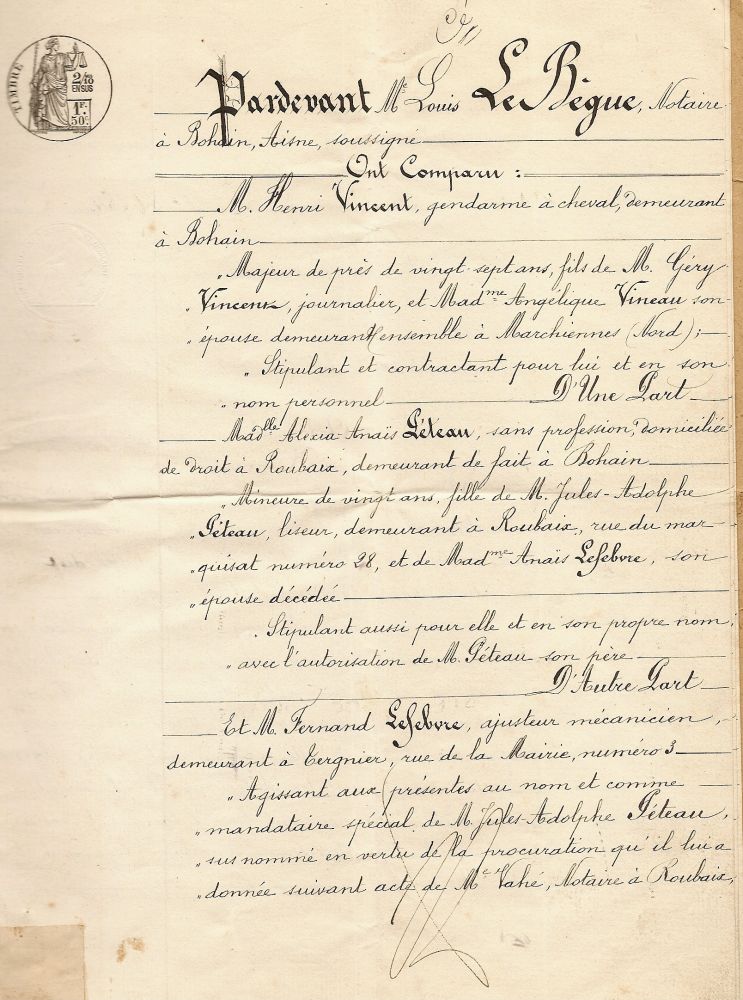 TIMBRE
2/10
EN SUS
1F.
50c.
Pardevant Me Louis Le Bègue, Notaire
à Bohain, Aisne, soussigné
Ont Comparu :
M. Henri Vincent, gendarme à cheval, demeurant
à Bohain
"Majeur de près de vingt-sept ans, fils de M. Géry
"Vincent, journalier, et Madme Angélique Vineau son
"épouse demeurant ensemble à Marchiennes (Nord);
"Stipulant et contractant pour lui et en son
"nom personnel D'Une Part
Madlle Alexia Anaïs Péteau, sans profession, domiciliée
de droit à Roubaix, demeurant de fait à Bohain
"Mineure de vingt ans, fille de M. Jules-Adolphe
"Péteau, liseur, demeurant à Roubaix, rue du mar-
"quisat numéro 28, et de Madme Anaïs Lefebvre, son
"épouse décédée
"Stipulant aussi pour elle et en son propre nom,
"avec l'autorisation de M. Péteau son père
D'Autre Part
Et M. Fernand Lefebvre, ajusteur mécanicien,
demeurant à Tergnier, rue de la Mairie, numéro 3
"Agissant aux présentes au nom et comme
"mandataire spécial de M. Jules-Adolphe Péteau,
"sus nommé en vertu de la procuration qu'il lui a
"donnée suivant acte de Me Vahé, Notaire à Roubaix,